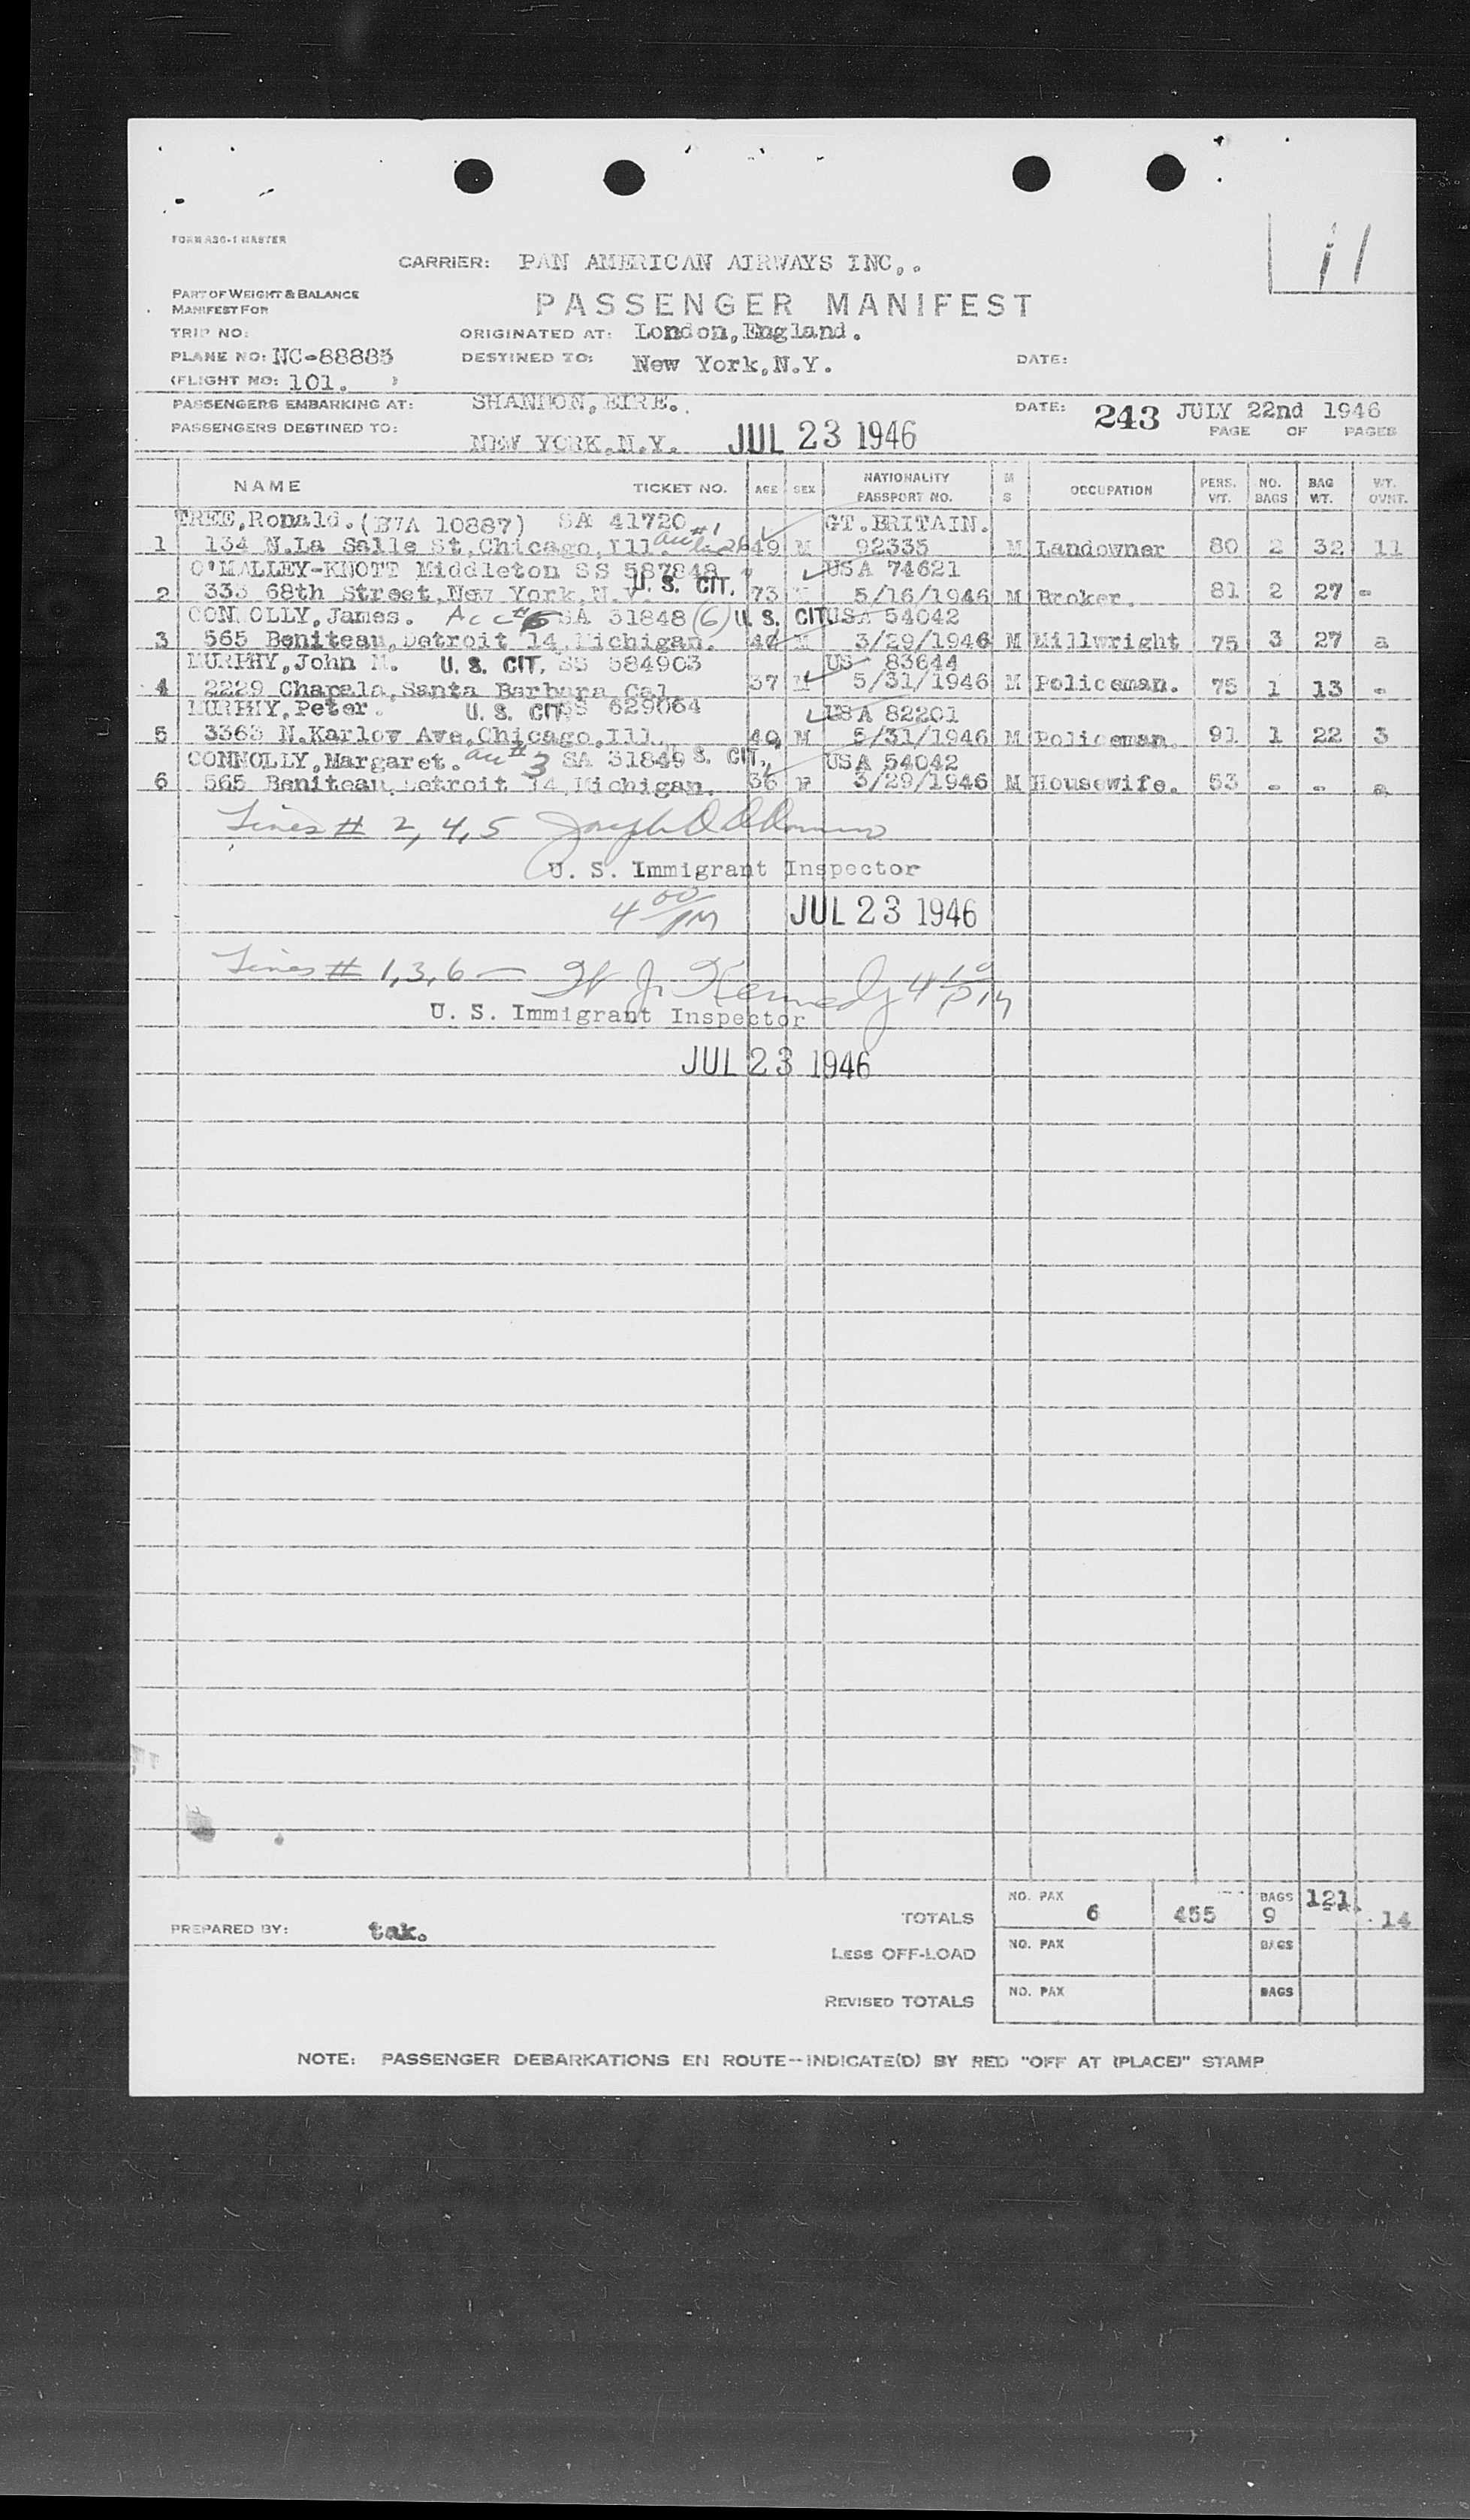 FORM A30-1 MASTER
11
CARRIER: PAN AMERICAN AIRWAYS INC,.
PART OF WEIGHT & BALANCE
MANIFEST FOR
PASSENGER MANIFEST
TRIP NO:
ORIGINATED AT: London,England.
PLANE NO: NC-88883
DESTINED TO: New York,N.Y.
DATE:
(FLIGHT NO: 101. )
PASSENGERS EMBARKING AT: SHANNON,EIRE.
DATE: 243 JULY 22nd 1946
PASSENGERS DESTINED TO: NEW YORK,N.Y. JUL 23 1946
PAGE OF PAGES
NAME TICKET NO. AGE SEX NATIONALITY PASSPORT NO. M S OCCUPATION PERS. WT. NO. BAGS BAG WT. WT. OVNT.
TREE,Ronald.(BWA 10887) SA 41720 GT.BRITAIN.
1 134 N.La Salle St,Chicago,Ill. 49 M 92335 M Landowner 80 2 32 11
O'MALLEY-KNOTT Middleton SS 587848 USA 74621
2 333 68th Street,New York,N.Y U. S. CIT. 73 M 5/16/1946 M Broker. 81 2 27 -
CONNOLLY,James. Acc #6 SA 31848 (6) U. S. CIT USA 54042
3 565 Beniteau,Detroit 14,Michigan. M 3/29/1946 M Millwright 75 3 27 a
MURPHY,John M. U. S. CIT. SS 584903 US 83644
4 2229 Chapala,Santa Barbara Cal. 37 M 5/31/1946 M Policeman. 75 1 13 -
MURPHY,Peter. U. S. CIT. SS 629064 USA 82201
5 3363 N.Karlov Ave,Chicago,Ill. 40 M 5/31/1946 M Policeman. 91 1 22 3
CONNOLLY,Margaret. acc #3 SA 31849 S. CIT. USA 54042
6 565 Beniteau,Detroit 14,Michigan. 36 F 3/29/1946 M Housewife. 53 - - a
Lines # 2, 4, 5 Joseph
U. S. Immigrant Inspector
4 00 PM JUL 23 1946
Lines # 1,3,6 — J. Kennedy 4 10 PM
U. S. Immigrant Inspector
JUL 23 1946
TOTALS NO. PAX 6 455 BAGS 9 121 14
PREPARED BY: tak.
LESS OFF-LOAD NO. PAX BAGS
REVISED TOTALS NO. PAX BAGS
NOTE: PASSENGER DEBARKATIONS EN ROUTE--INDICATE(D) BY RED "OFF AT (PLACE)" STAMP